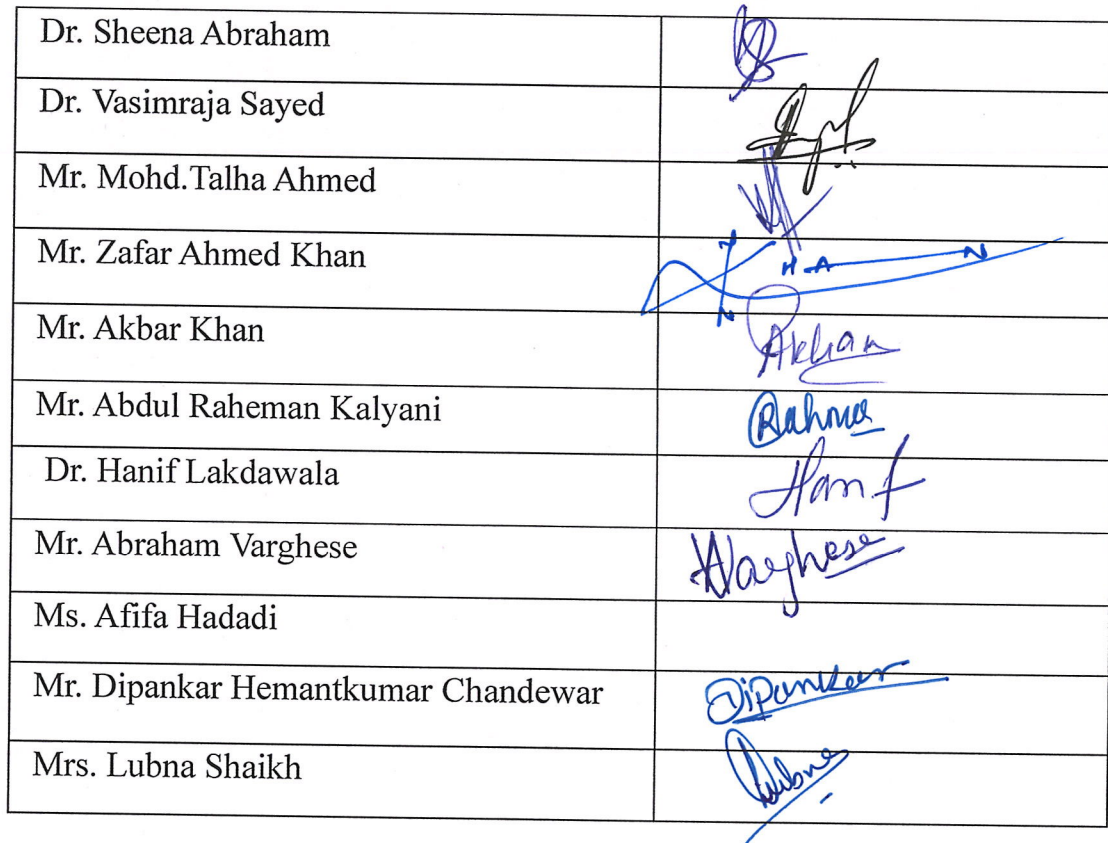 Dr. Sheena Abraham
Dr. Vasimraja Sayed
Mr. Mohd.Talha Ahmed
Mr. Zafar Ahmed Khan
Mr. Akbar Khan
Mr. Abdul Raheman Kalyani
Dr. Hanif Lakdawala Hanif
Mr. Abraham Varghese Varghese
Ms. Afifa Hadadi
Mr. Dipankar Hemantkumar Chandewar Dipankar
Mrs. Lubna Shaikh Lubna